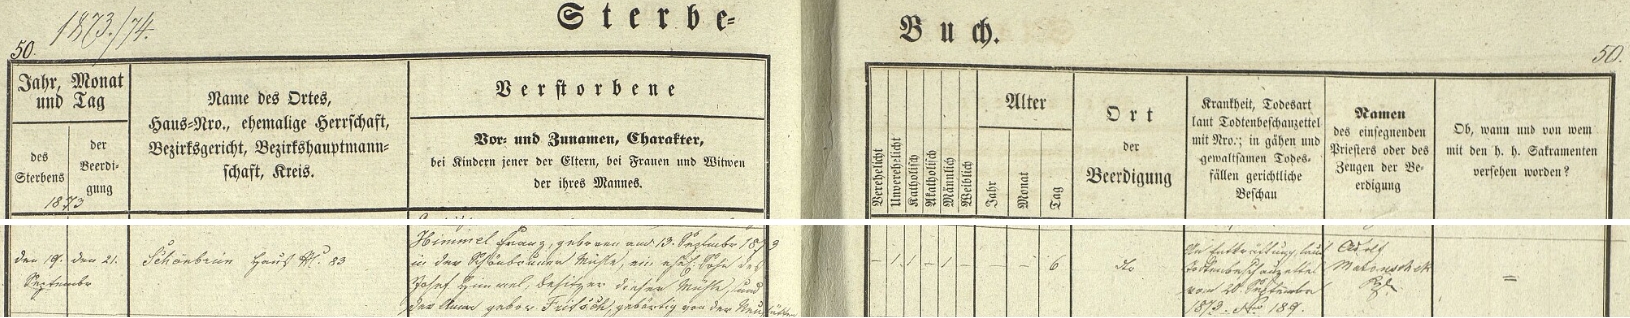 1873/74.
Sterbe=
Buch.
50.
50.
Jahr, Monat
und Tag
des
Sterbens
der
Beerdi-
gung
1873
Name des Ortes,
Haus-Nro., ehemalige Herrschaft,
Bezirksgericht, Bezirkshauptmann-
schaft, Kreis.
Verstorbene
Vor- und Zunamen, Charakter,
bei Kindern jener der Eltern, bei Frauen und Witwen
der ihres Mannes.
Verehelicht
Unverehelicht
Katholisch
Akatholisch
Männlich
Weiblich
Alter
Jahr
Monat
Tag
Ort
der
Beerdigung
Krankheit, Todesart
laut Todtenbeschauzettel
mit Nro.; in gähen und
gewaltsamen Todes-
fällen gerichtliche
Beschau
Namen
des einsegnenden
Priesters oder des
Zeugen der Be-
erdigung
Ob, wann und von wem
mit den h. h. Sakramenten
versehen worden?
den 19. den 21.
September
Schönbrunn Haus Nr. 83
Himmel Franz, geboren am 13. September 1873
in der Schönbrunner Mühle, ein ehel. Sohn des
Josef Himmel, Besitzer dieser Mühle, und
der Anna gebor. Fritsch, gebürtig von der
– 1 1 – 1 – – – 6
An Entkräftung laut
Todtenbeschauzettel
vom 20. September
1873. Nro 189.
Adolf
=